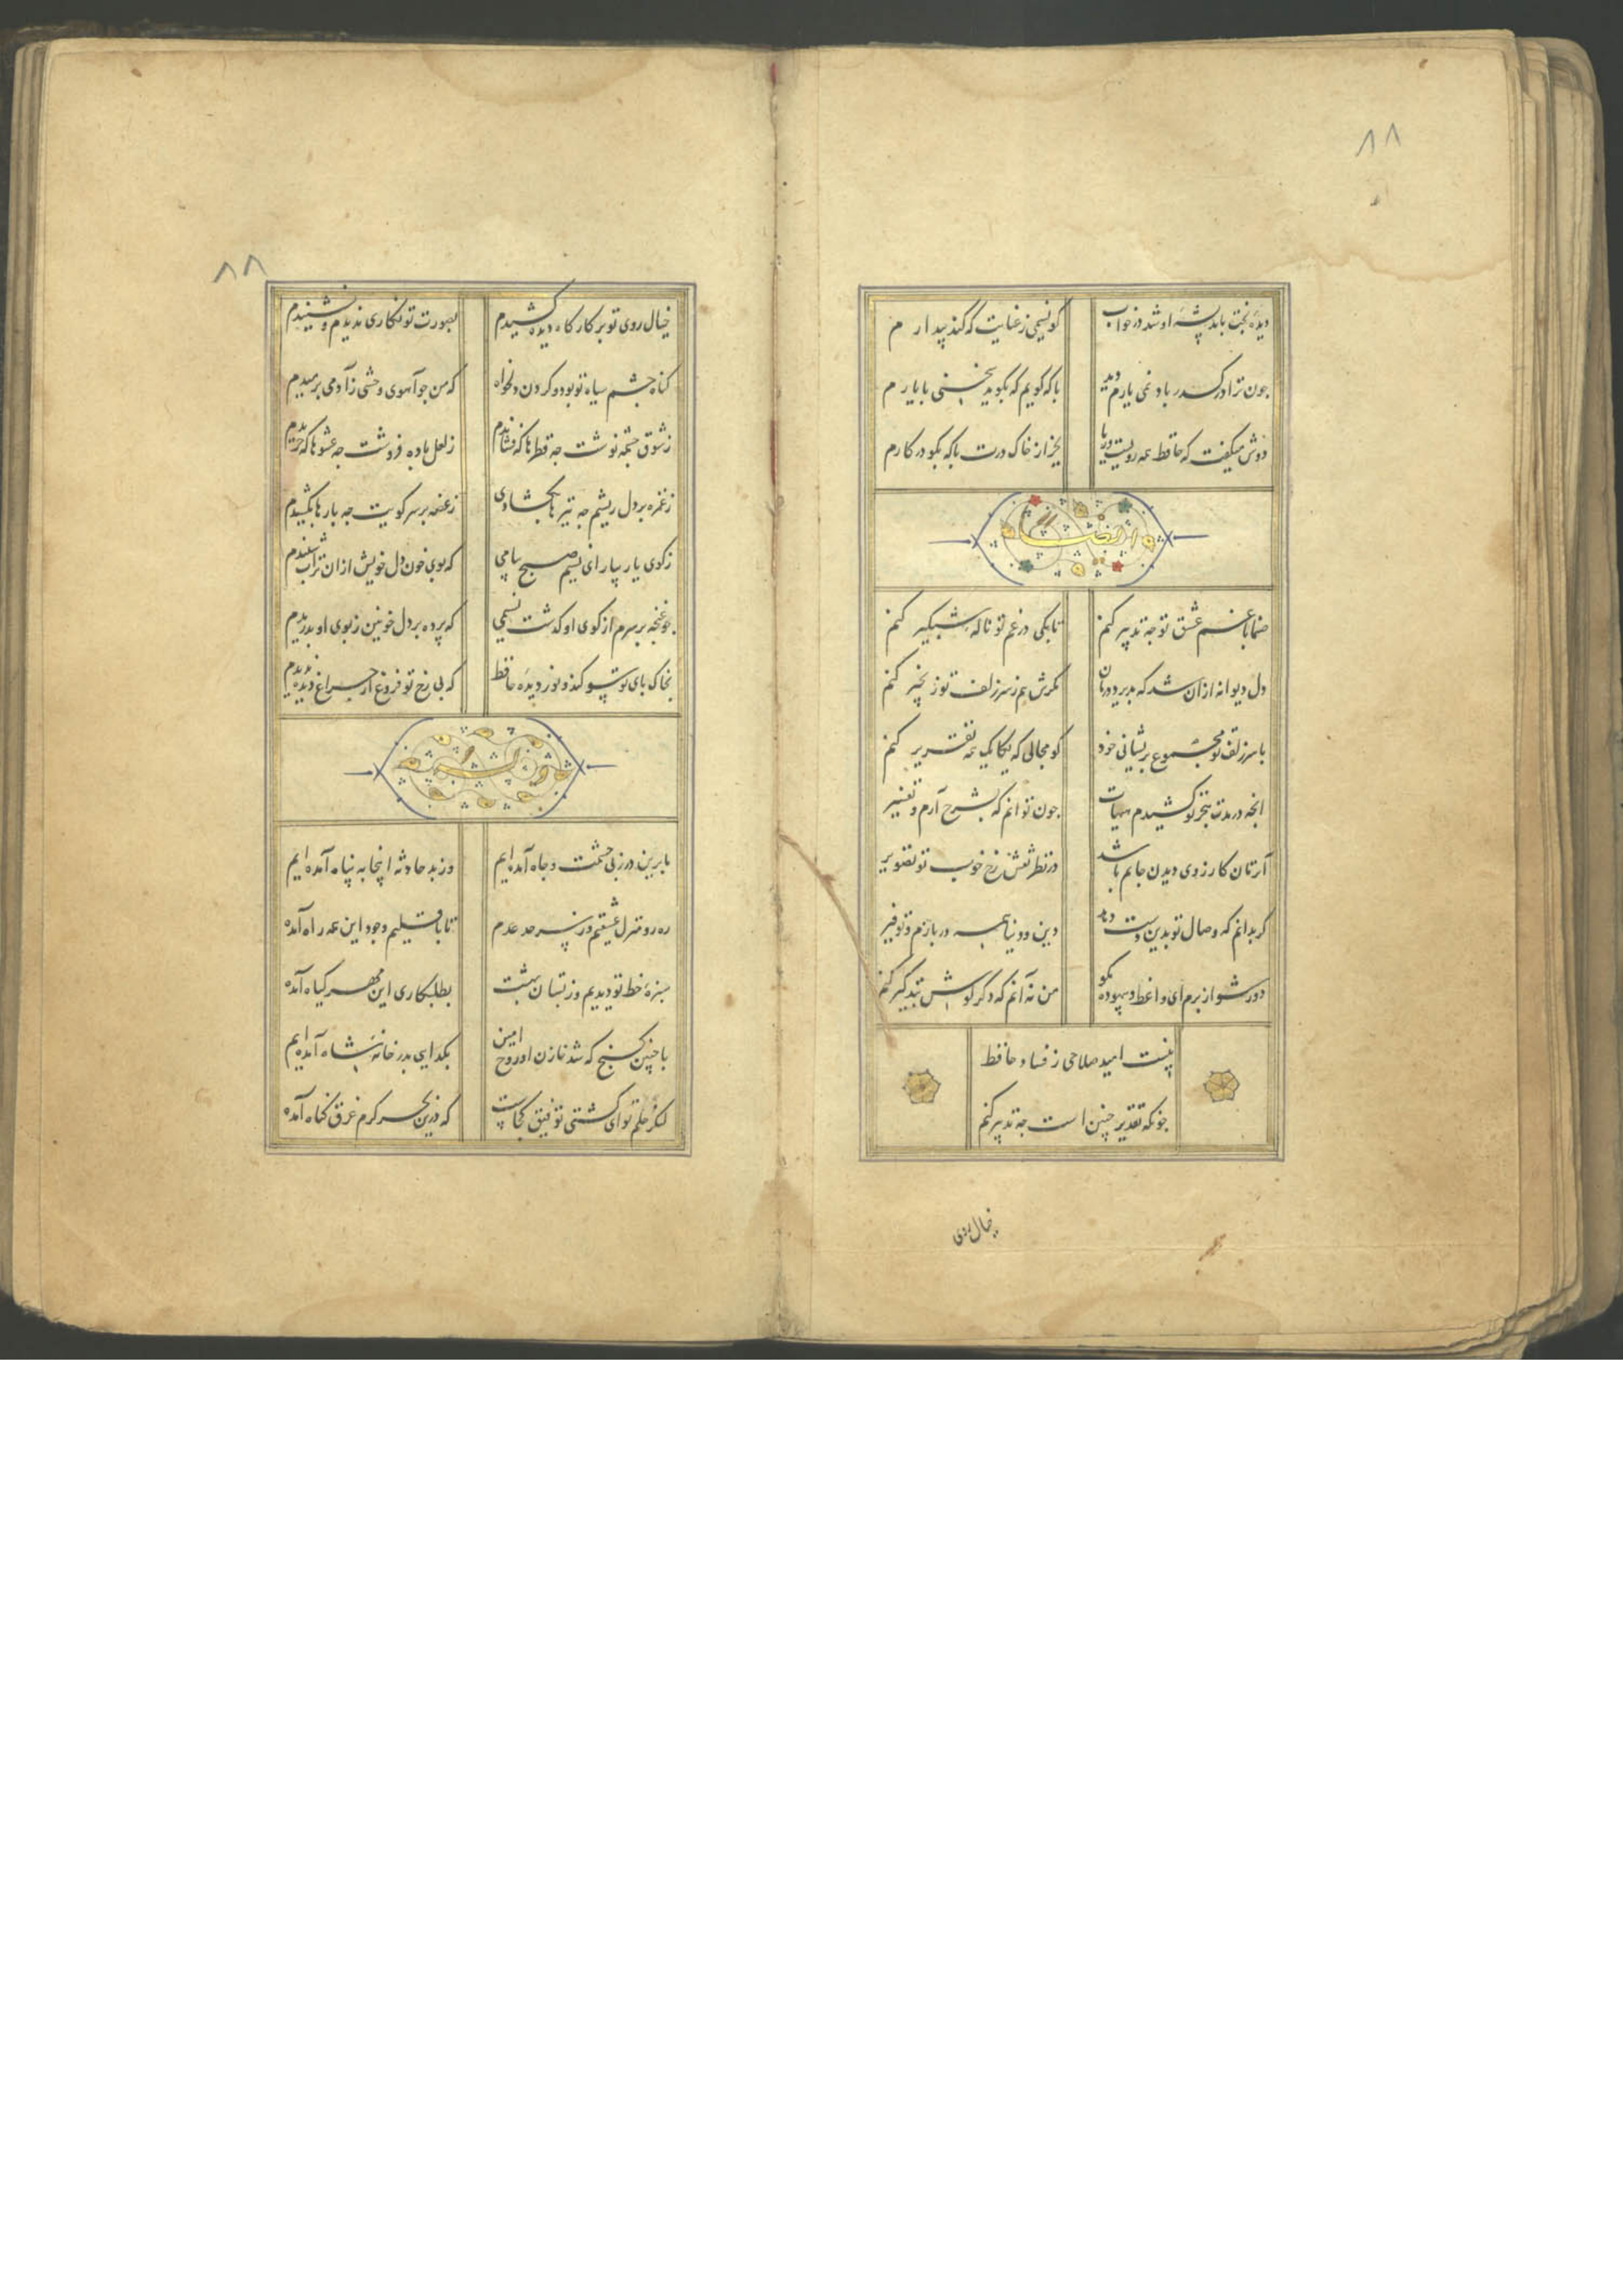 ۸۸
دیده بخت بافسانه او شد در خواب کو نسیمی ز عنایت که کند بیدارم
چون ترا در گذر باد نمی یارم دید با که گویم که بگوید سخنی با یارم
دوش میگفت که حافظ همه رویست و ریا بجز از خاک درت با که بگو در کارم
ایضا
صنما با غم عشق تو چه تدبیر کنم تا بکی در غم تو ناله شبگیر کنم
دل دیوانه از آن شد که پذیرد درمان مگرش هم ز سر زلف تو زنجیر کنم
با سر زلف تو مجموع پریشانی خود کو مجالی که یکایک همه تقریر کنم
آنچه در مدت هجر تو کشیدم هیهات چون توانم که بشرح آرم و تفسیر
آن زمان کارزوی دیدن جانم باشد در نظر نقش رخ خوب تو تصویر
گر بدانم که وصال تو بدین دست دهد دین و دنیا همه در بازم و توفیر
دور شو از برم ای واعظ و بیهوده مگو من نه آنم که دگر گوش بتذکیر کنم
نیست امید صلاحی ز فساد حافظ
چونکه تقدیر چنین است چه تدبیر کنم
خیال روی
۸۸
خیال روی تو بر کارگاه دیده کشیدم بصورت تو نگاری ندیدم و نشنیدم
گناه چشم سیاه تو بود و گردن دلخواه که من چو آهوی وحشی ز آدمی برمیدم
ز شوق چشمه نوشت چه قطرها که فشاندم ز لعل باده فروشت چه عشوها که خریدم
ز غمزه بر دل ریشم چه تیرها که گشادی ز غصه بر سر کویت چه بارها که کشیدم
ز کوی یار بیار ای نسیم صبح پیامی که بوی خون دل خویش از آن تراب شنیدم
چو غنچه بر سرم از کوی او گذشت نسیمی که پرده بر دل خونین ز بوی او بدریدم
بخاک پای تو سوگند و نور دیده حافظ که بی رخ تو فروغ از چراغ دیده ندیدم
ما برین در نه پی حشمت و جاه آمده‌ایم وز بد حادثه اینجا به پناه آمده ایم
ره رو منزل عشقیم و ز سر حد عدم تا باقلیم وجود این همه راه آمده
سبزهٔ خط تو دیدیم و ز بستان بهشت بطلبکاری این مهر گیاه آمده
با چنین گنج که شد خازن او روح امین بگدایی بدر خانه شاه آمده ایم
لنگر حلم تو ای کشتی توفیق کجاست که درین بحر کرم غرق گناه آمده